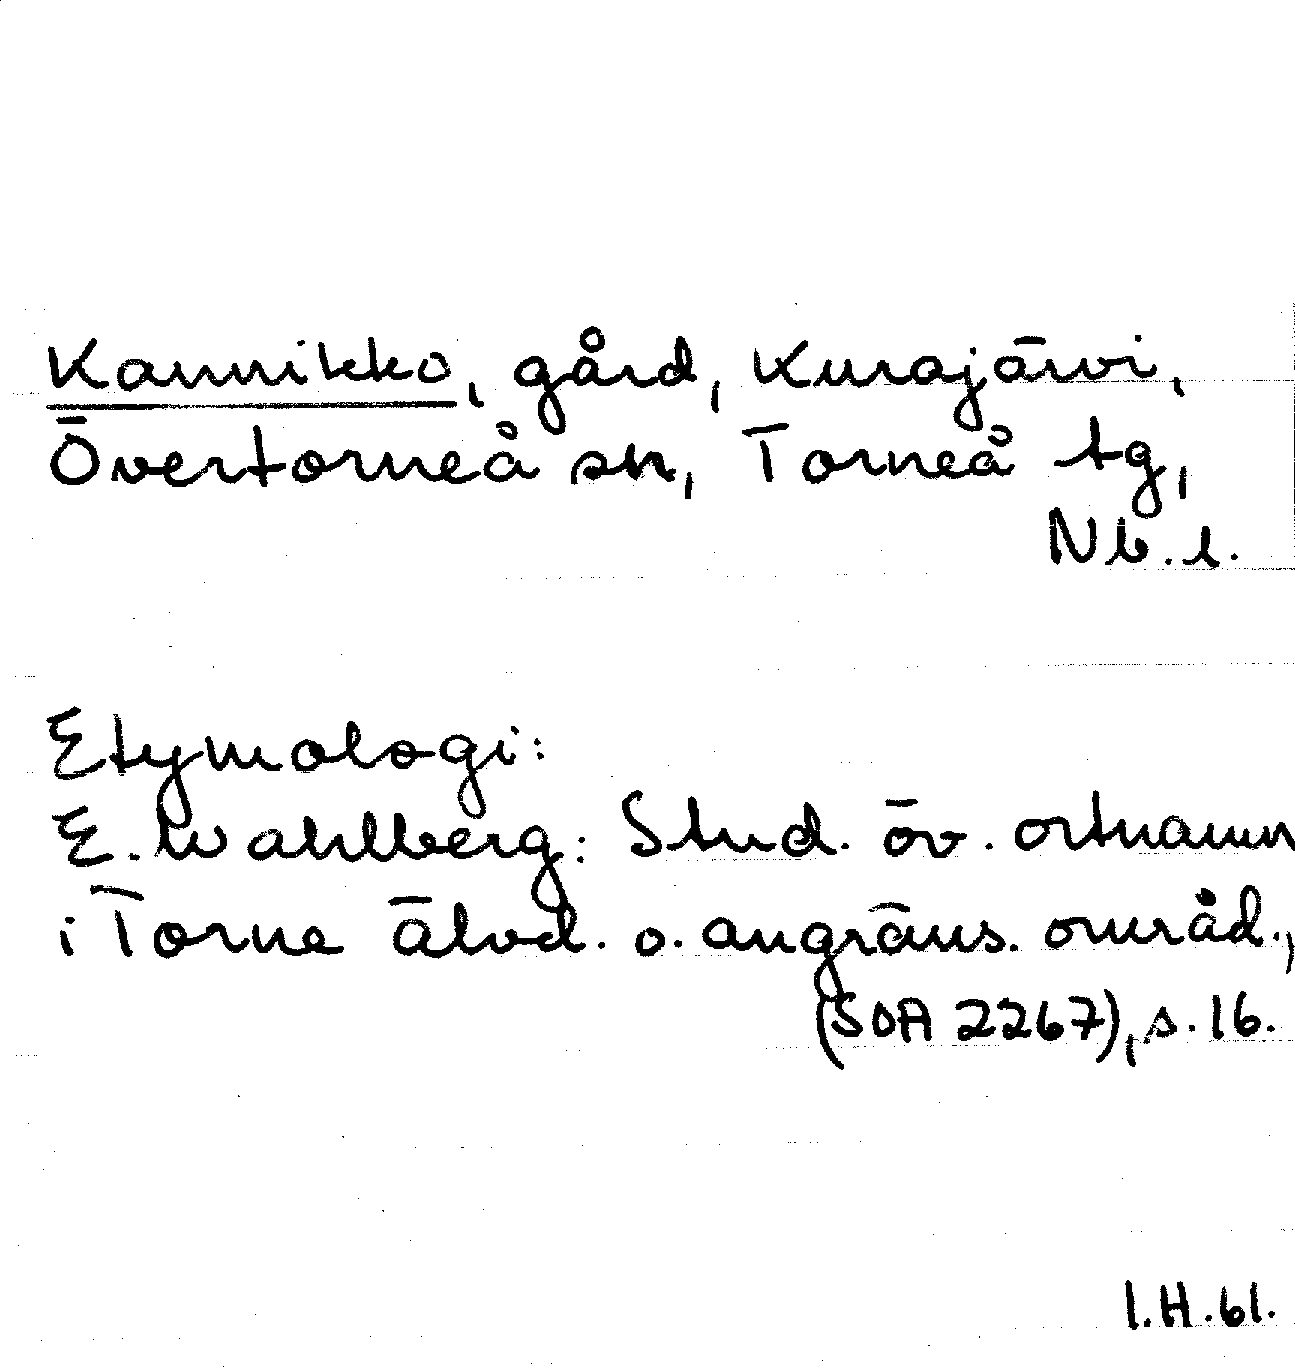 Kannikko, gård, Kurajärvi,
Övertorneå sn, Torneå tg,
Nb.l.
Etymologi:
E. Wahlberg: Stud. öv. ortnamn
i Torne älvd. o. angräns. områd.,
(SOA 2267), s. 16.
I.H.61.